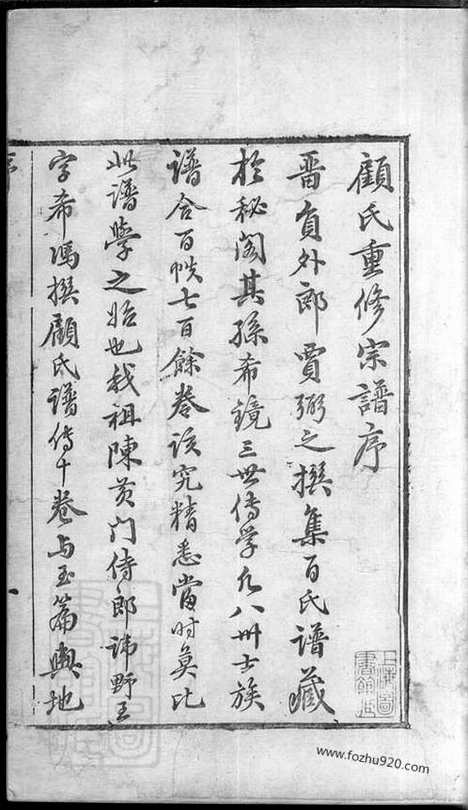 顧氏重修宗譜序
晋負外郎賈弼之撰集百氏譜藏
於秘閣其孫希鏡三世傳学凡十八卅士族
譜合百帙七百餘卷該究精悉當时莫比
此譜學之始也我祖陳黄门侍郎諱野王
字希馮撰顧氏譜傳十卷与玉篇輿地
上海圖書館藏
www.fozhu920.com